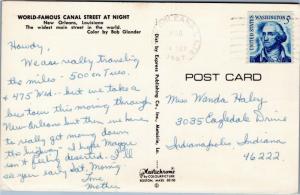 WORLD-FAMOUS CANAL STREET AT NIGHT
New Orleans, Louisiana
The widest main street in the world.
Color by Bob Glander
Howdy,
We are really traveling
the miles - 500 on Tues.
+ 475 Wed. - but we take a
bus tour this morning through
New Orleans but then we have
to really get moving down
the highway - I hope Maggie
isn't feeling deserted. I'll
see you early Sat. Morning
Love
Mother
Dist. by Express Publishing Co., Inc., Metairie, La.
BY COLOURPICTURE
BOSTON, MASS. 02130
WASHINGTON 5c
POST CARD
Miss Wanda Haley
3035 Eagledale Drive
Indianapolis, Indiana
46222